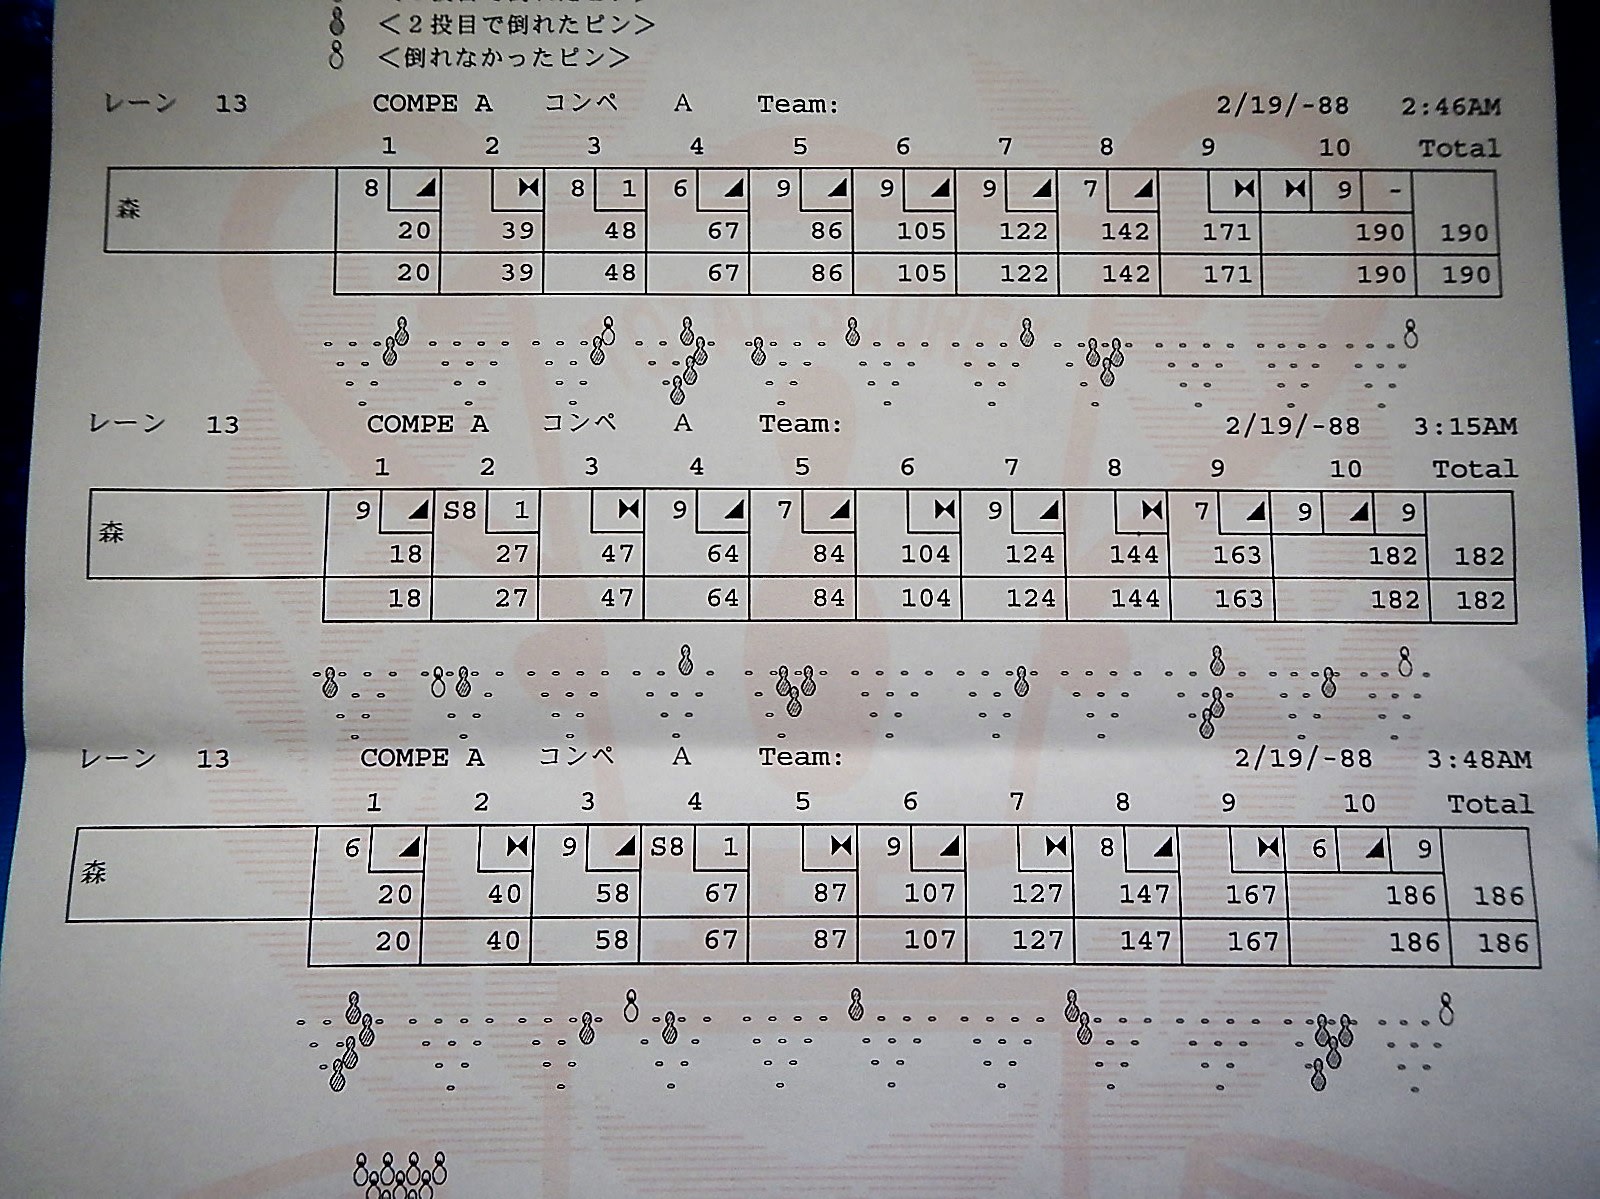 <２投目で倒れたピン>
<倒れなかったピン>
レーン 13 COMPE A コンペ A Team: 2/19/-88 2:46AM
1 2 3 4 5 6 7 8 9 10 Total
森 8 ◢ ⧓ 8 1 6 ◢ 9 ◢ 9 ◢ 9 ◢ 7 ◢ ⧓ ⧓ 9 -
20 39 48 67 86 105 122 142 171 190 190
20 39 48 67 86 105 122 142 171 190 190
レーン 13 COMPE A コンペ A Team: 2/19/-88 3:15AM
1 2 3 4 5 6 7 8 9 10 Total
森 9 ◢ S8 1 ⧓ 9 ◢ 7 ◢ ⧓ 9 ◢ ⧓ 7 ◢ 9 ◢ 9
18 27 47 64 84 104 124 144 163 182 182
18 27 47 64 84 104 124 144 163 182 182
レーン 13 COMPE A コンペ A Team: 2/19/-88 3:48AM
1 2 3 4 5 6 7 8 9 10 Total
森 6 ◢ ⧓ 9 ◢ S8 1 ⧓ 9 ◢ ⧓ 8 ◢ ⧓ 6 ◢ 9
20 40 58 67 87 107 127 147 167 186 186
20 40 58 67 87 107 127 147 167 186 186